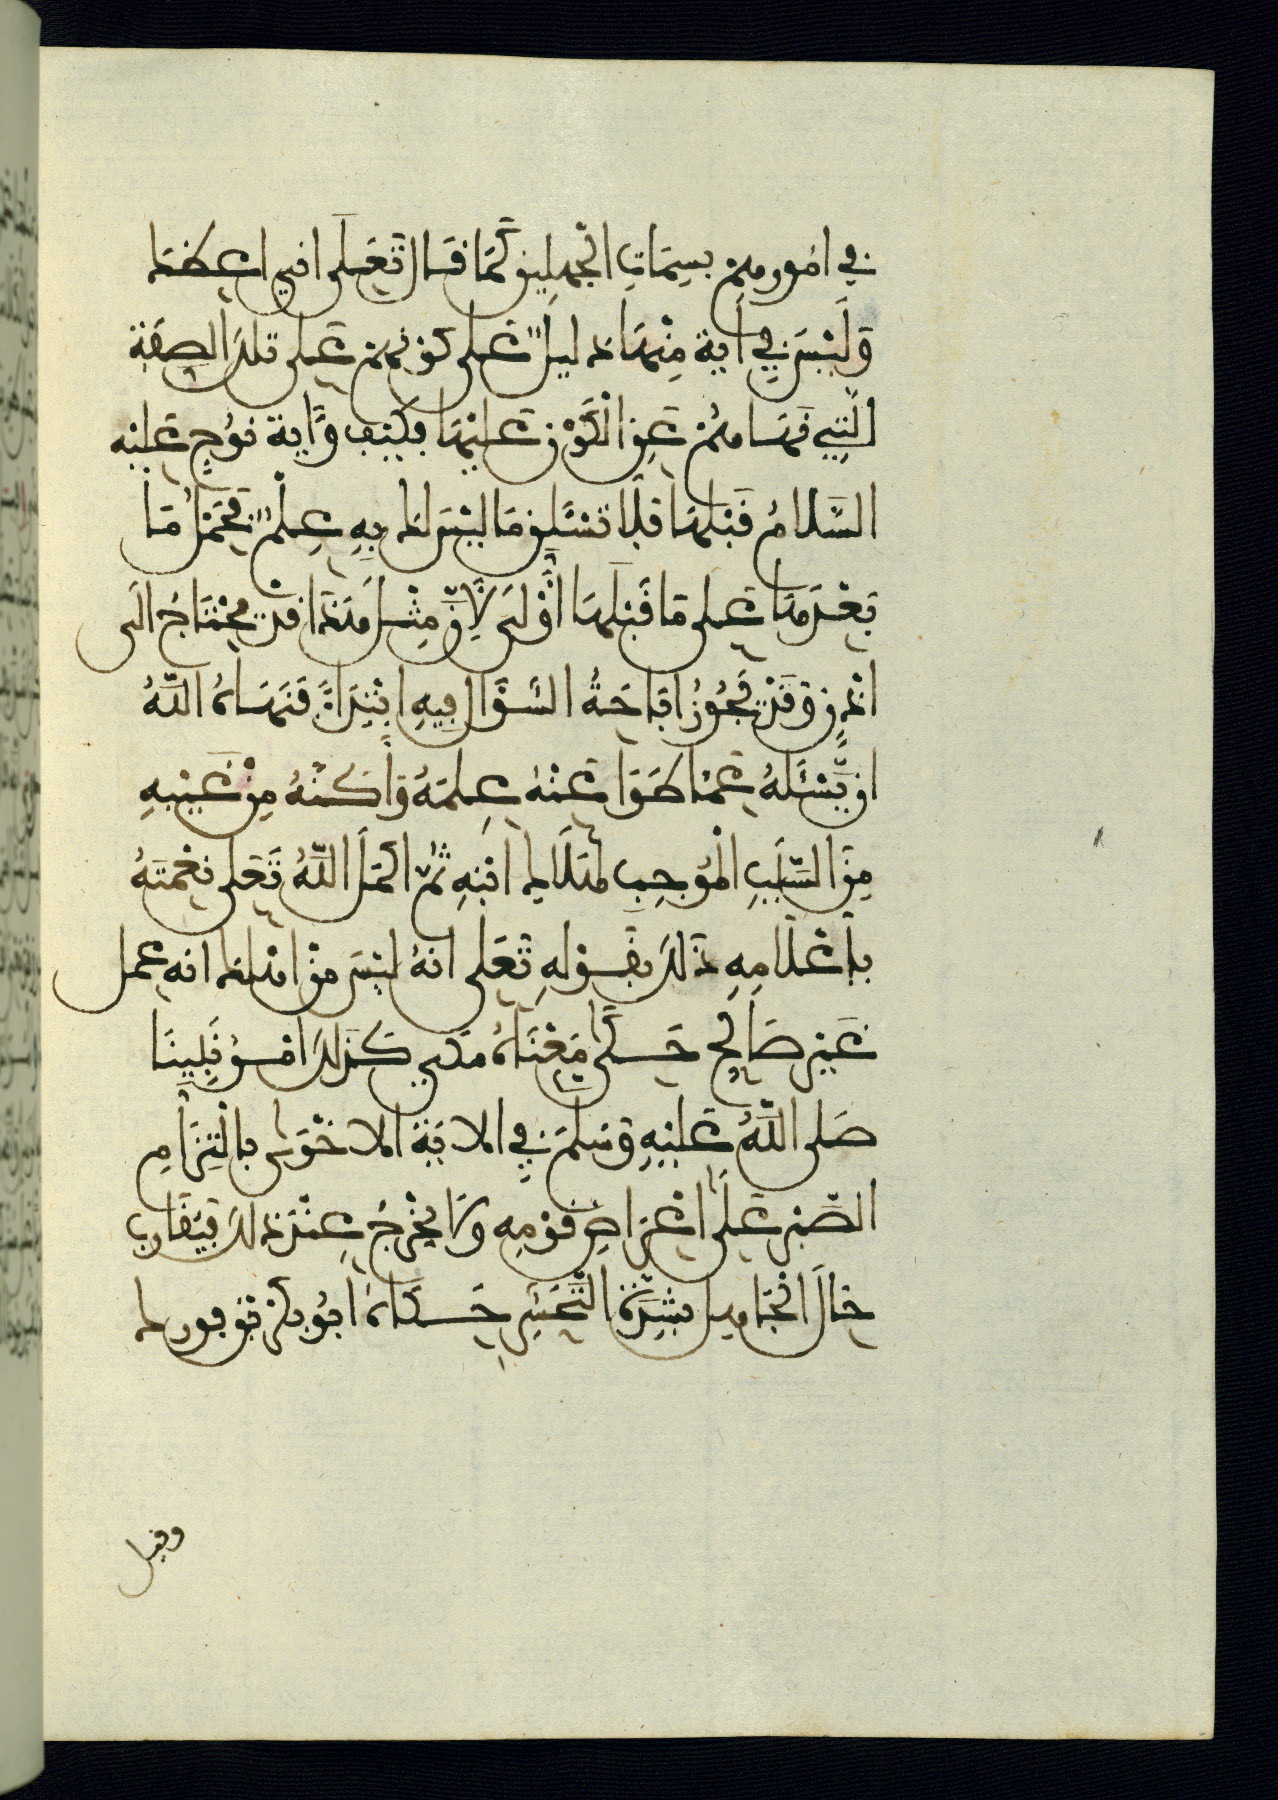 في امورهم بسمات الجهلين كما قال تعلى اني اعظك
وليس في ءاية منها دليل على كونهم على تلك الصفة
التي نهاهم عن الكون عليها فكيف وءاية نوح عليه
السلام قبلها فلا تسئلن ما ليس لك به علم فحمل ما
بعدها على ما قبلها أولى لأن مثل هذا قد يحتاج الى
اذن وقد يجوز اباحة السؤال فيه ابتداء فنهاه الله
ان يسئله عما طوا عنه علمه واكنه من غيبه
من السبب الموجب لهلاك ابنه ثم اكمل الله تعلى نعمته
باعلامه ذلك بقوله تعلى انه ليس من اهلك انه عمل
غير صالح حكى معناه مكي كذلك امر نبينا
صلى الله عليه وسلم في الاية الاخرى بالتزام
الصبر على اعراض قومه ولا يخرج عند ذلك فيقارب
حال الجاهل بشدة التحسر حكاه ابو بكر بن فورك
وقيل